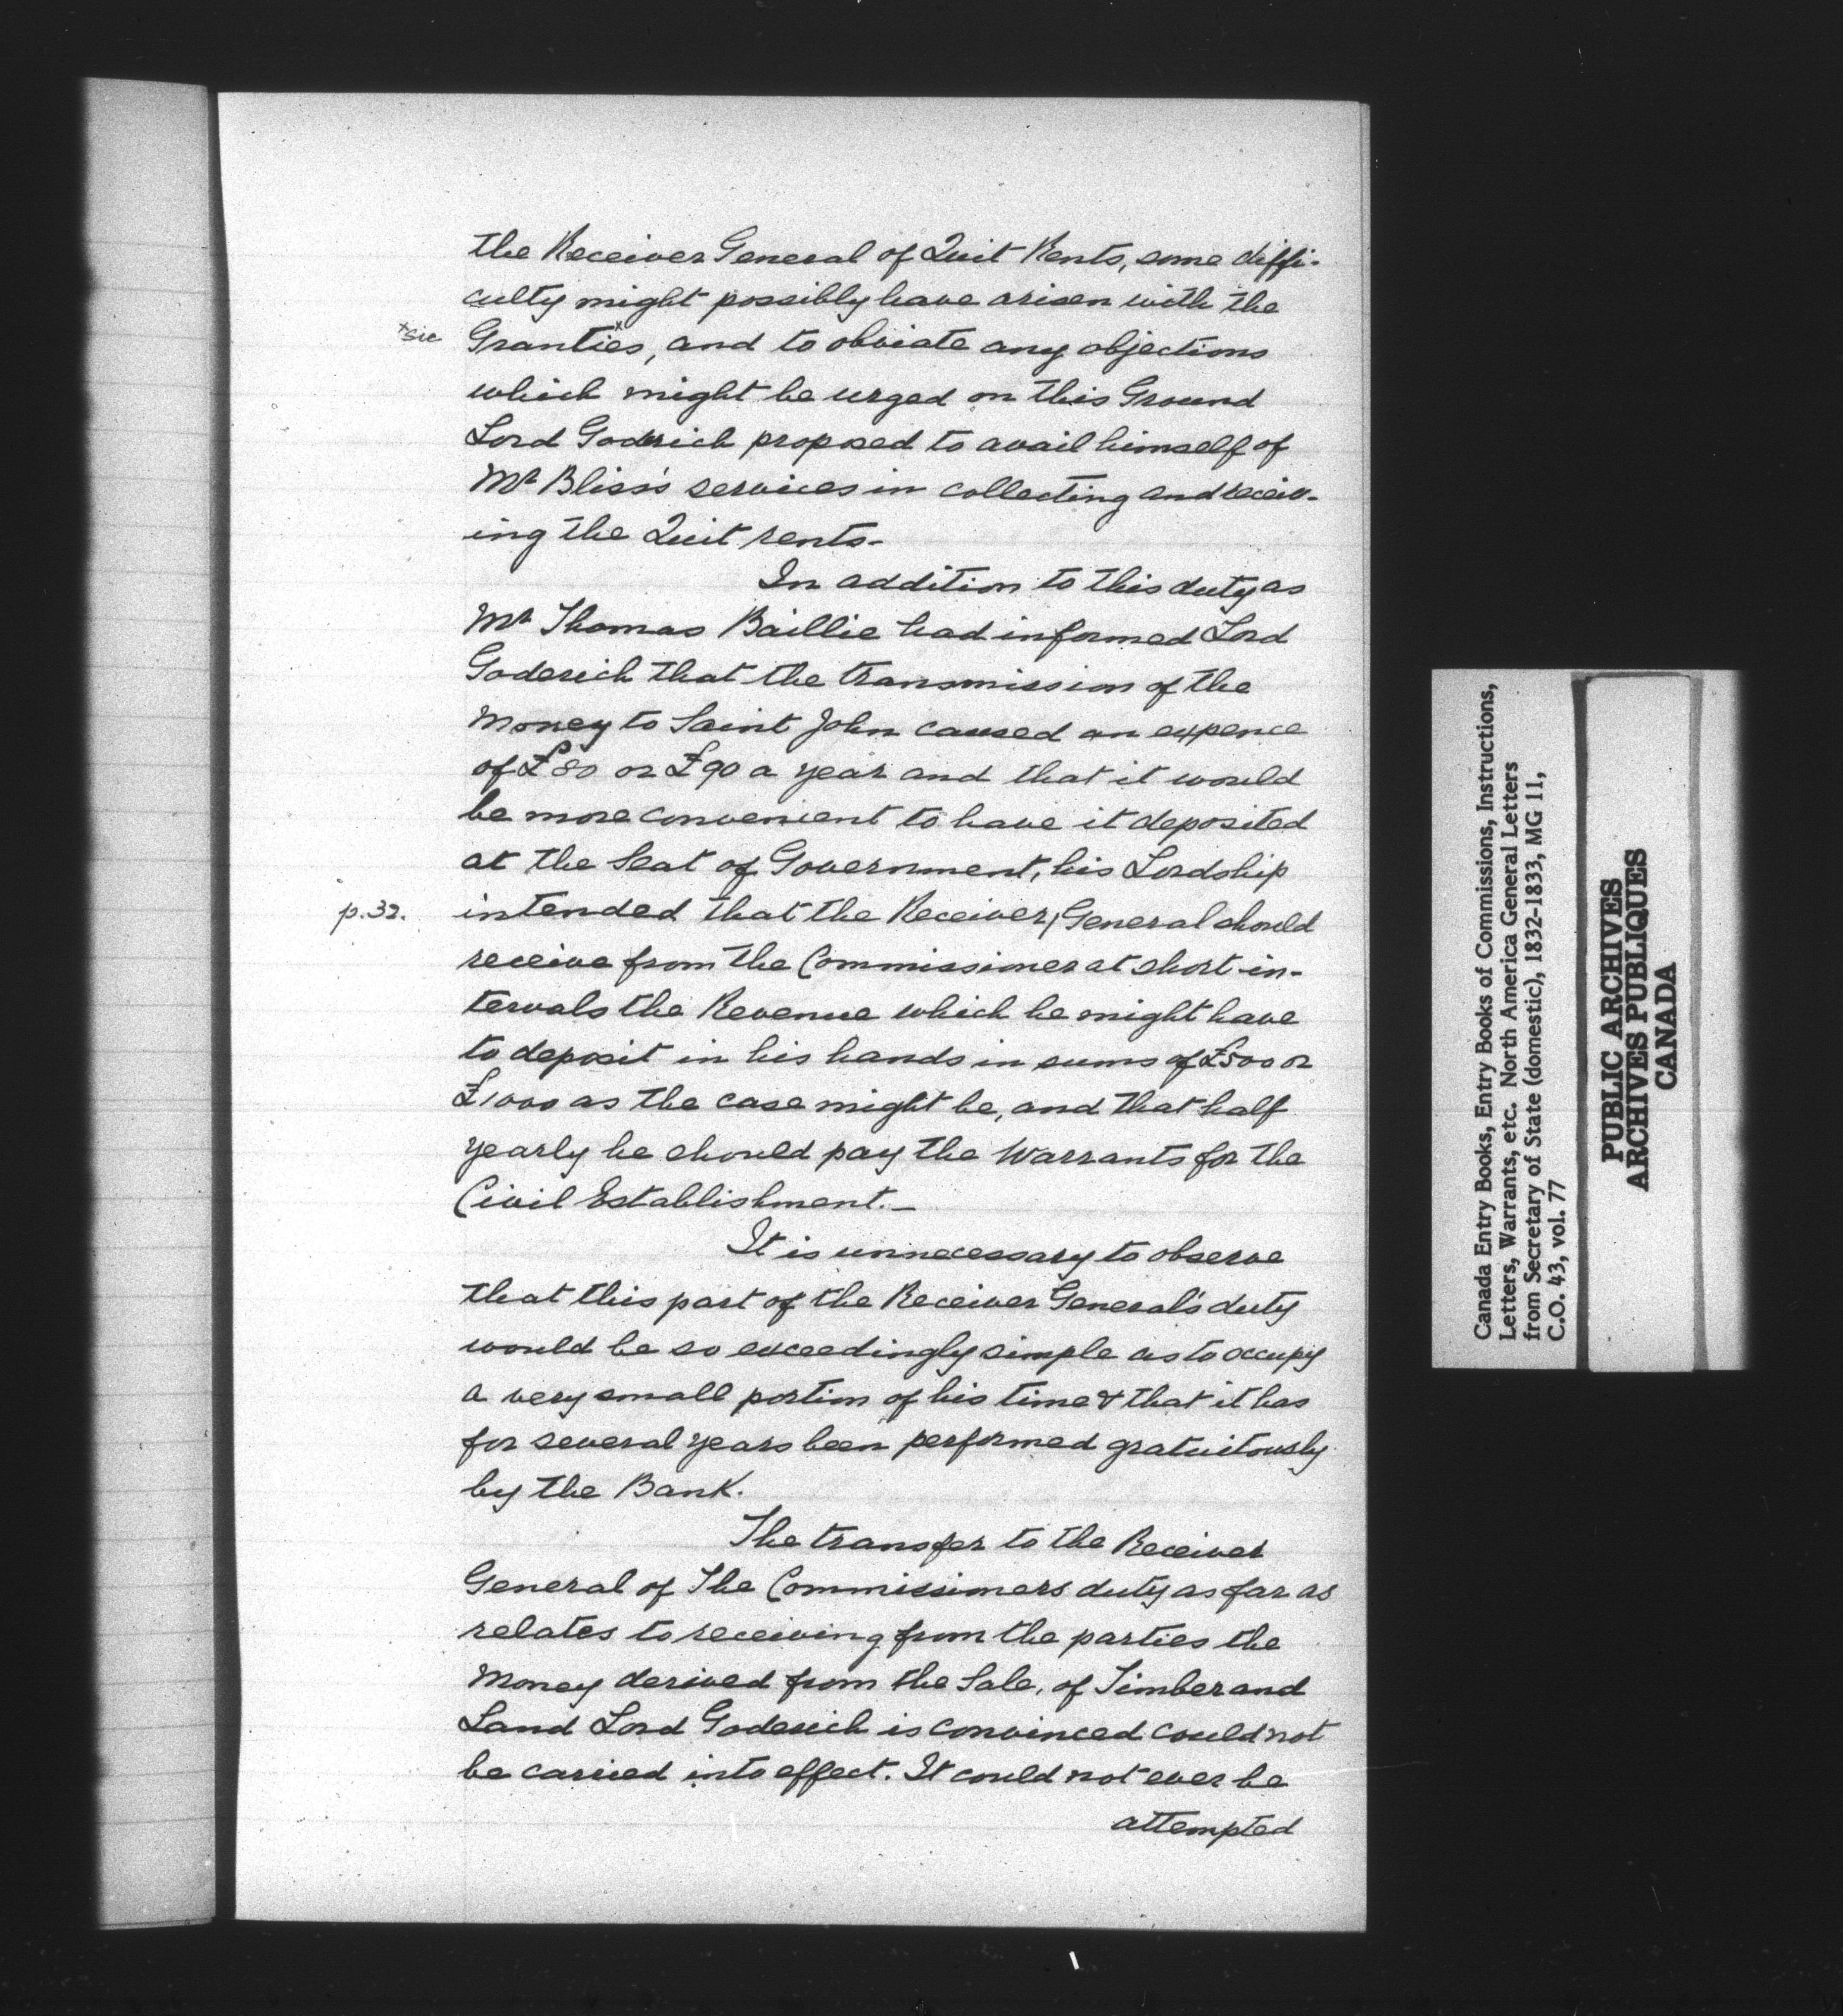 the Receiver General of Quit Rents, some diffi-
culty might possibly have arisen with the
+sic Granties,x and to obviate any objections
which might be urged on this Ground
Lord Goderich proposed to avail himself of
Mr Bliss's services in collecting and receiv-
ing the Quit rents-
In addition to this duty as
Mr Thomas Baillie had informed Lord
Goderich that the transmission of the
Money to Saint John caused an expence
of £80 or £90 a year and that it would
be more convenient to have it deposited
at the Seat of Government, his Lordship
p.32. intended that the Receiver/General should
receive from the Commissioner at short in-
tervals the Revenue which he might have
to deposit in his hands in sums of £500 or
£1000 as the case might be, and that half
yearly he should pay the Warrants for the
Civil Establishment.-
It is unnecessary to observe
that this part of the Receiver General's duty
would be so exceedingly simple as to occupy
a very small portion of his time & that it has
for several years been performed gratuitously
by the Bank.
The transfer to the Receiver
General of The Commissioners duty as far as
relates to receiving from the parties the
Money derived from the Sale, of Timber and
Land Lord Goderich is convinced could not
be carried into effect. It could not ever be
attempted
Canada Entry Books, Entry Books of Commissions, Instructions,
Letters, Warrants, etc. North America General Letters
from Secretary of State (domestic), 1832-1833, MG 11,
C.O. 43, vol. 77
PUBLIC ARCHIVES
ARCHIVES PUBLIQUES
CANADA